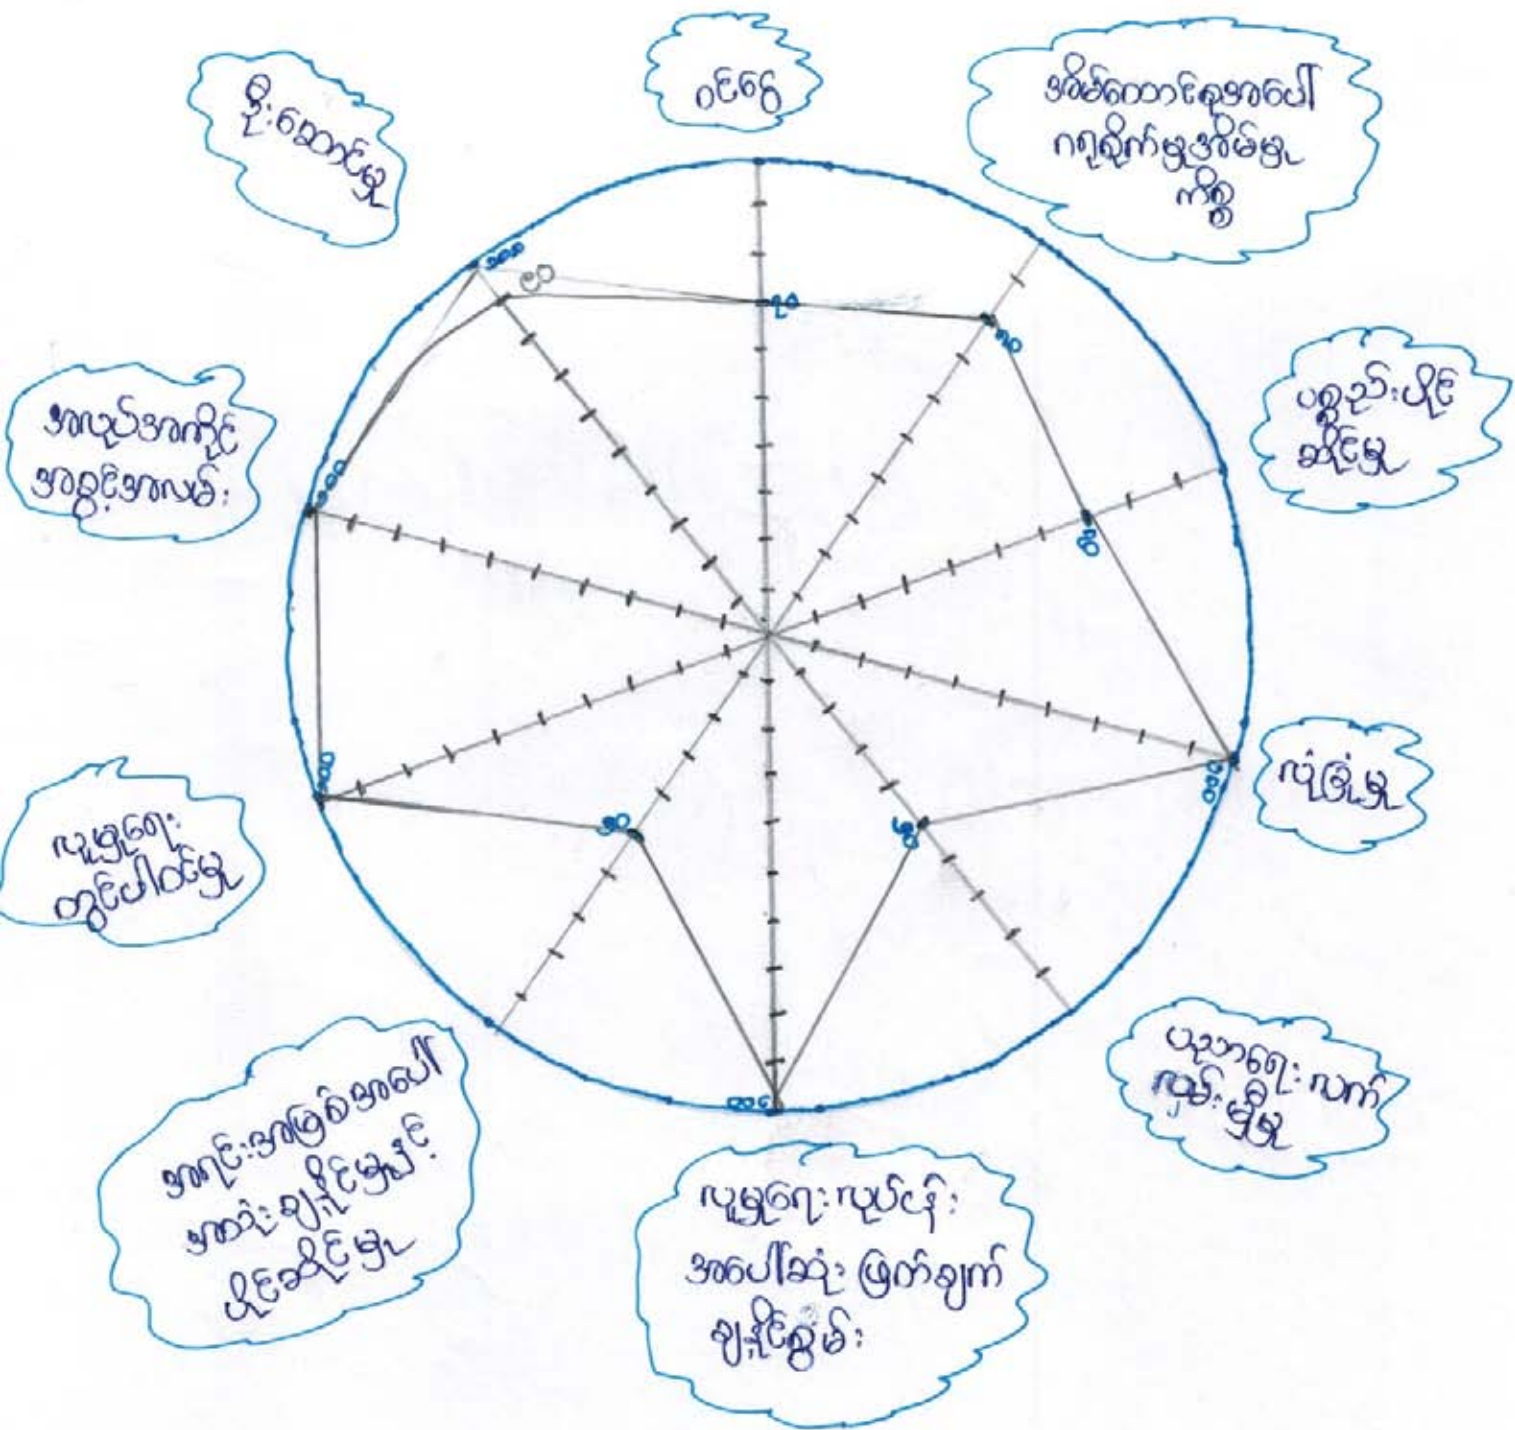 ဝင်ငွေ
အိမ်ထောင်စုအပေါ်
ဂရုစိုက်မှုအိမ်မှု
ကိစ္စ
ပစ္စည်းပိုင်
ဆိုင်မှု
လုံခြုံမှု
ပညာရေး လက်
လှမ်းမှီမှု
လူမှုရေးလုပ်ငန်း
အပေါ်ဆုံးဖြတ်ချက်
ချနိုင်စွမ်း
အရင်းအမြစ်အပေါ်
အသုံးချနိုင်မှုနှင့်
ပိုင်ဆိုင်မှု
လူမှုရေး
တွင်ပါဝင်မှု
အလုပ်အကိုင်
အခွင့်အလမ်း
ဦးဆောင်မှု
၁၀၀
၉၀
၇၀
၈၀
၇၀
၁၀၀
၅၀
၁၀၀
၅၀
၁၀၀
၁၀၀